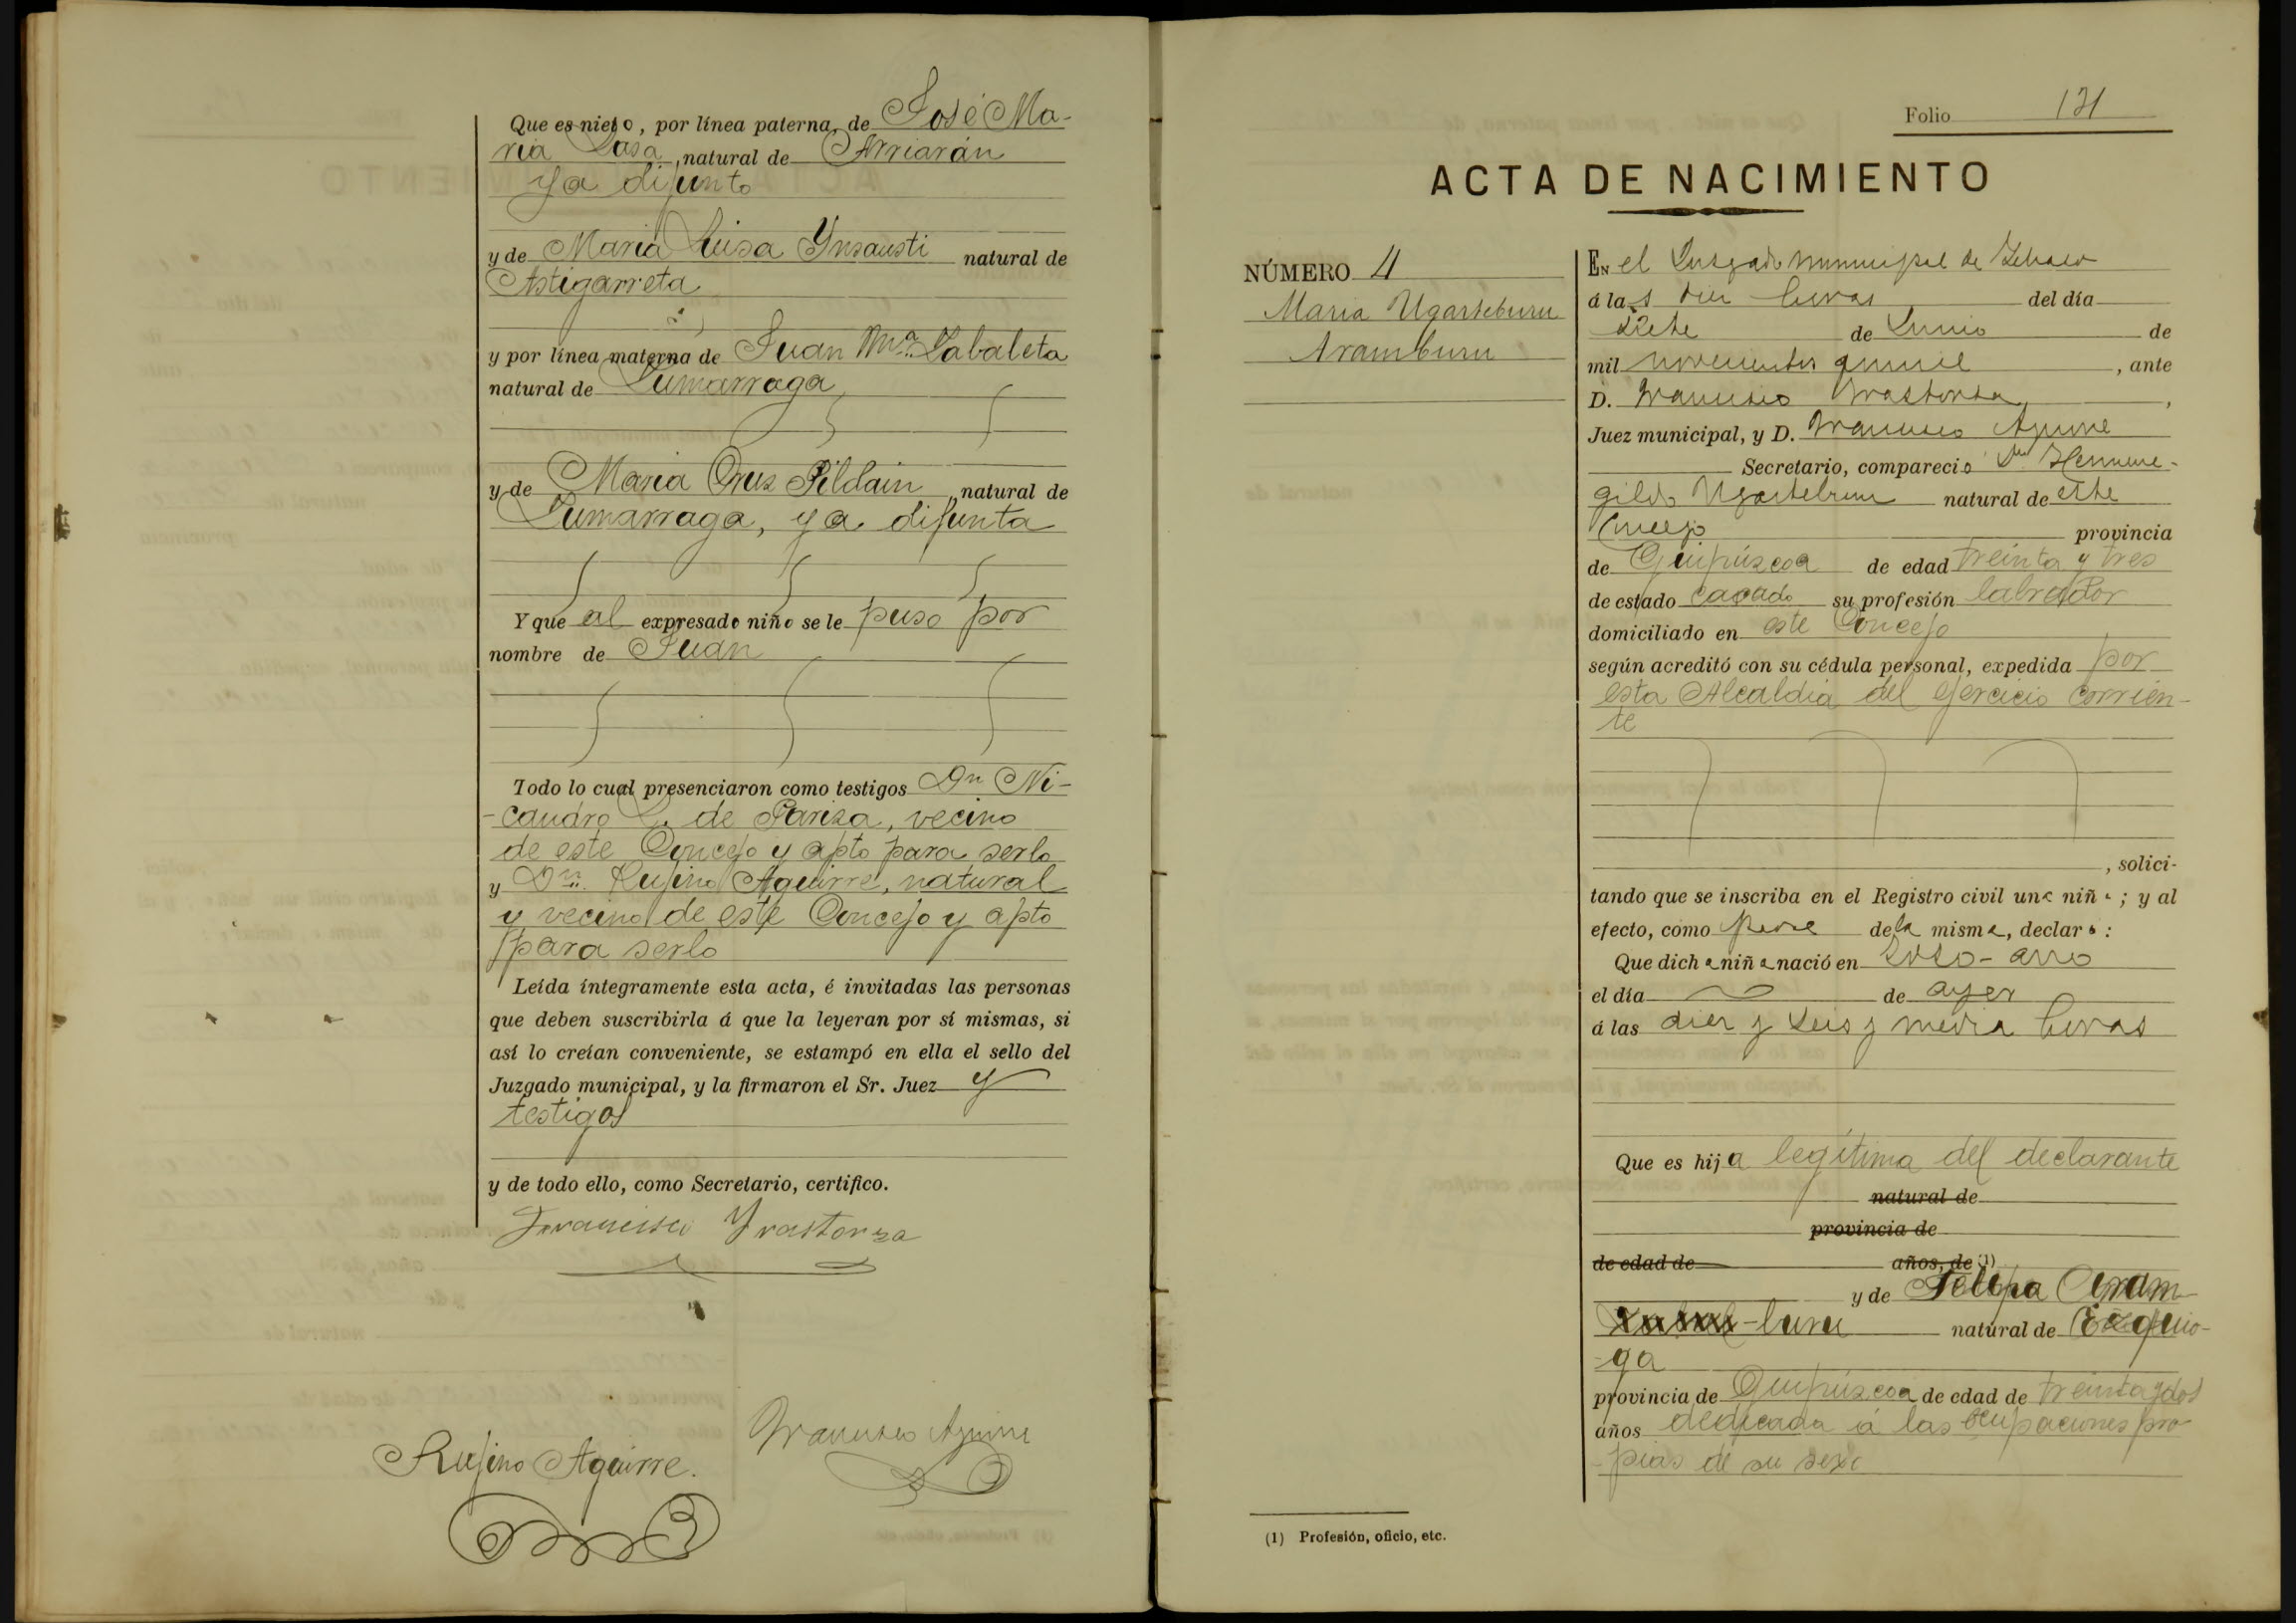 Que es nieto, por línea paterna, de José Ma-
ria Lasa, natural de Arriarán
ya difunto
y de Maria Luisa Ynsausti natural de
Astigarreta
y por línea materna de Juan Mª Zabaleta
natural de Zumarraga
y de Maria Cruz Pildain, natural de
Zumarraga, ya difunta
Y que al expresado niño se le puso por
nombre de Juan
Todo lo cual presenciaron como testigos Dn Ni-
-candro L. de Pariza, vecino
de este Concejo y apto para serlo
y Dn. Rufino Aguirre, natural
y vecino de este Concejo y apto
para serlo
Leída íntegramente esta acta, é invitadas las personas
que deben suscribirla á que la leyeran por sí mismas, si
así lo creían conveniente, se estampó en ella el sello del
Juzgado municipal, y la firmaron el Sr. Juez y
testigos
y de todo ello, como Secretario, certifico.
Francisco Yrastorza
Rufino Aguirre.
Francisco Aguirre
Folio 121
ACTA DE NACIMIENTO
NÚMERO 4
Maria Ugarteburu
Aramburu
EN el Juzgado municipal de
á las diez horas del día
siete de Junio de
mil novecientos quince, ante
D. Francisco Yrastorza,
Juez municipal, y D. Francisco Aguirre
Secretario, compareció Dn Hermene-
gildo Ugarteburu natural de este
Concejo provincia
de Guipúzcoa de edad treinta y tres
de estado casado su profesión labrador
domiciliado en este Concejo
según acreditó con su cédula personal, expedida por
esta Alcaldia del ejercicio corrien-
te
, solici-
tando que se inscriba en el Registro civil una niña; y al
efecto, como padre de la misma, declaró:
Que dicha niña nació en
el día de ayer
á las diez y seis y media horas
Que es hija legítima del declarante
natural de
provincia de
de edad de años, de (1)
y de Josefa Aram-
-buru natural de Ezquio-
-ga
provincia de Guipúzcoa de edad de treinta y dos
años dedicada á las ocupaciones pro-
-pias de su sexo
(1) Profesión, oficio, etc.